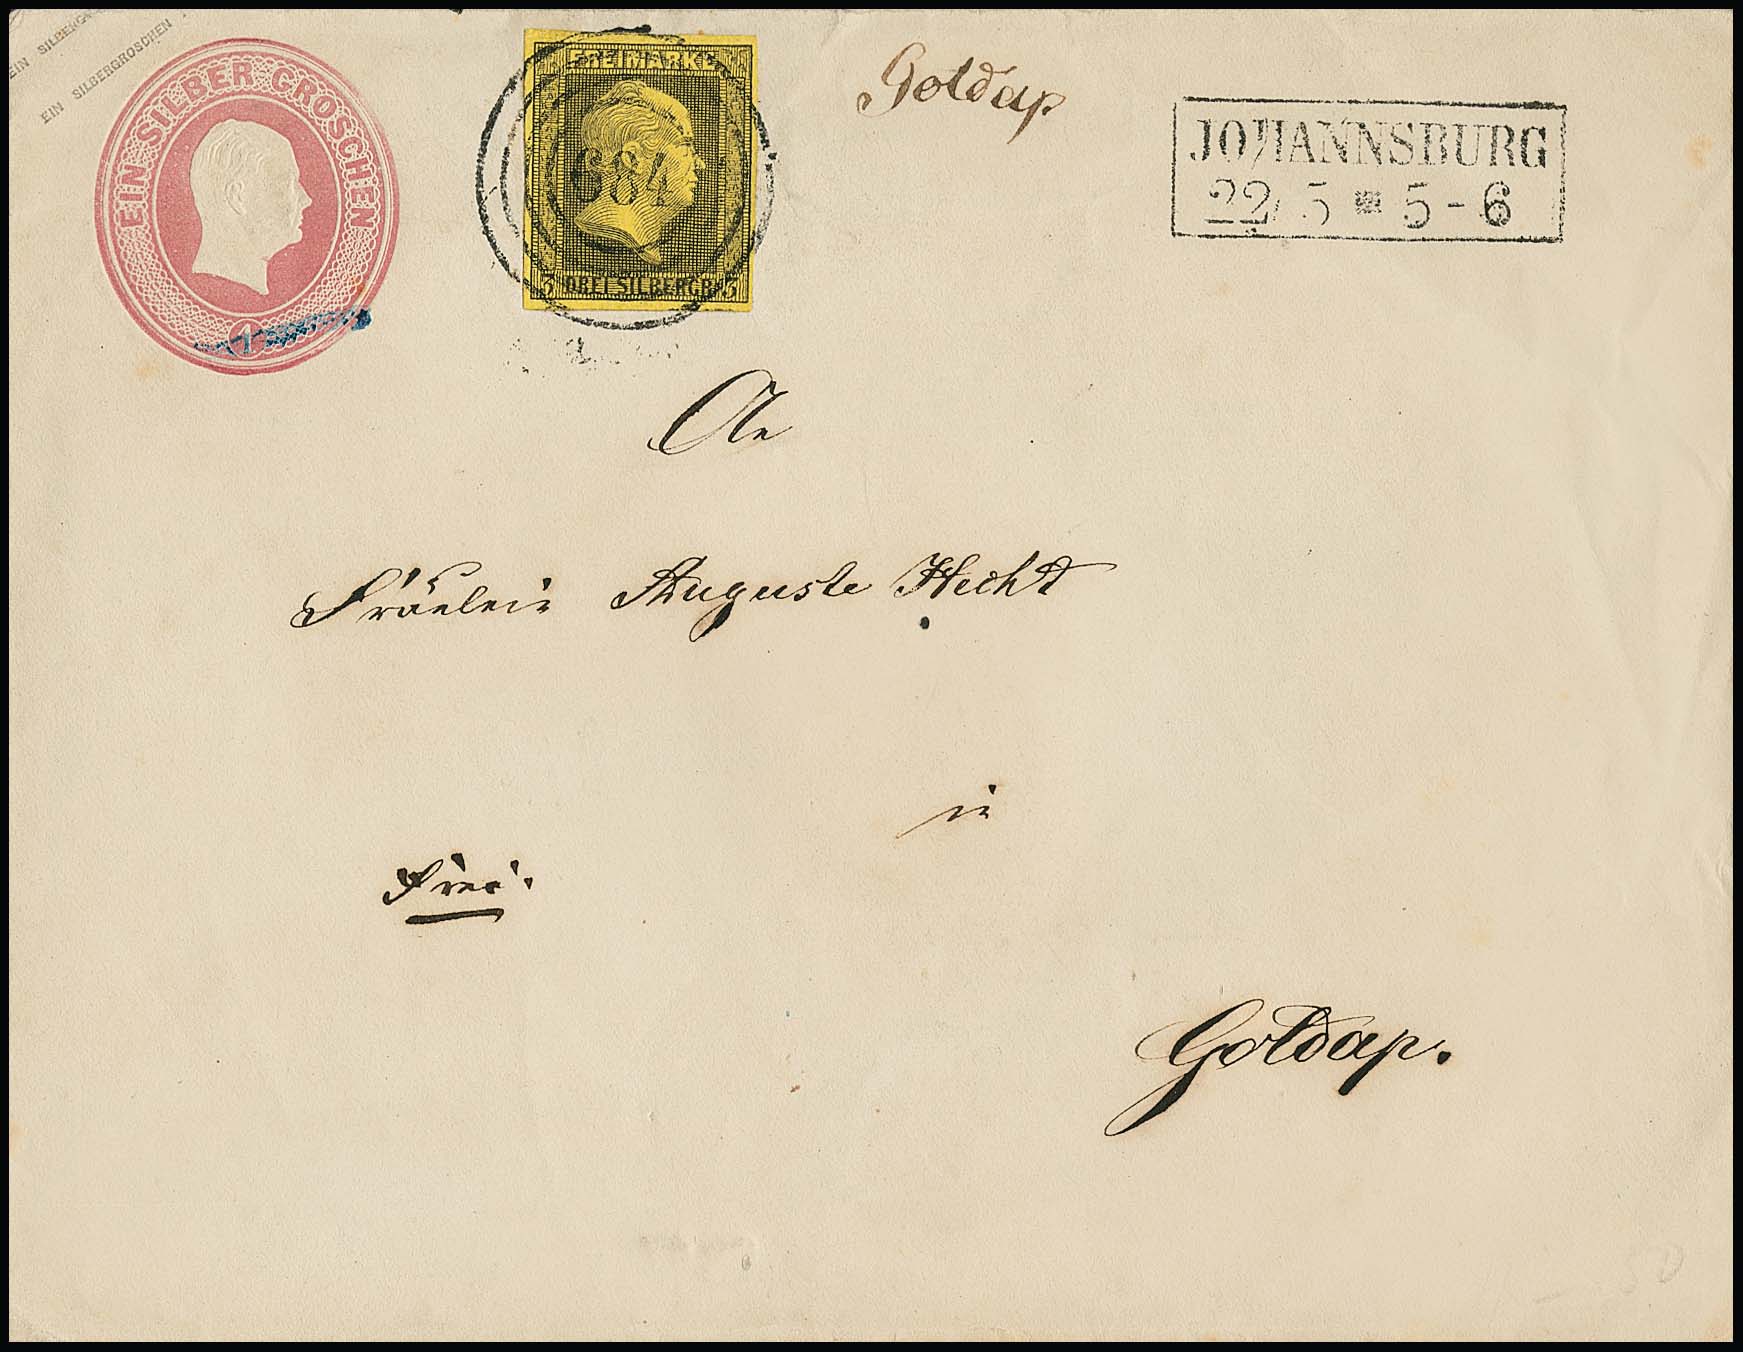 EIN SILBERG
EIN SILBERGROSCHEN
EIN SILBER GROSCHEN
1
FREIMARKE
684
3 DREI SILBERGR. 3
Goldap
JOHANNSBURG
22/5 * 5-6
An
Fräulein Auguste Hecht
in
Frei.
Goldap.